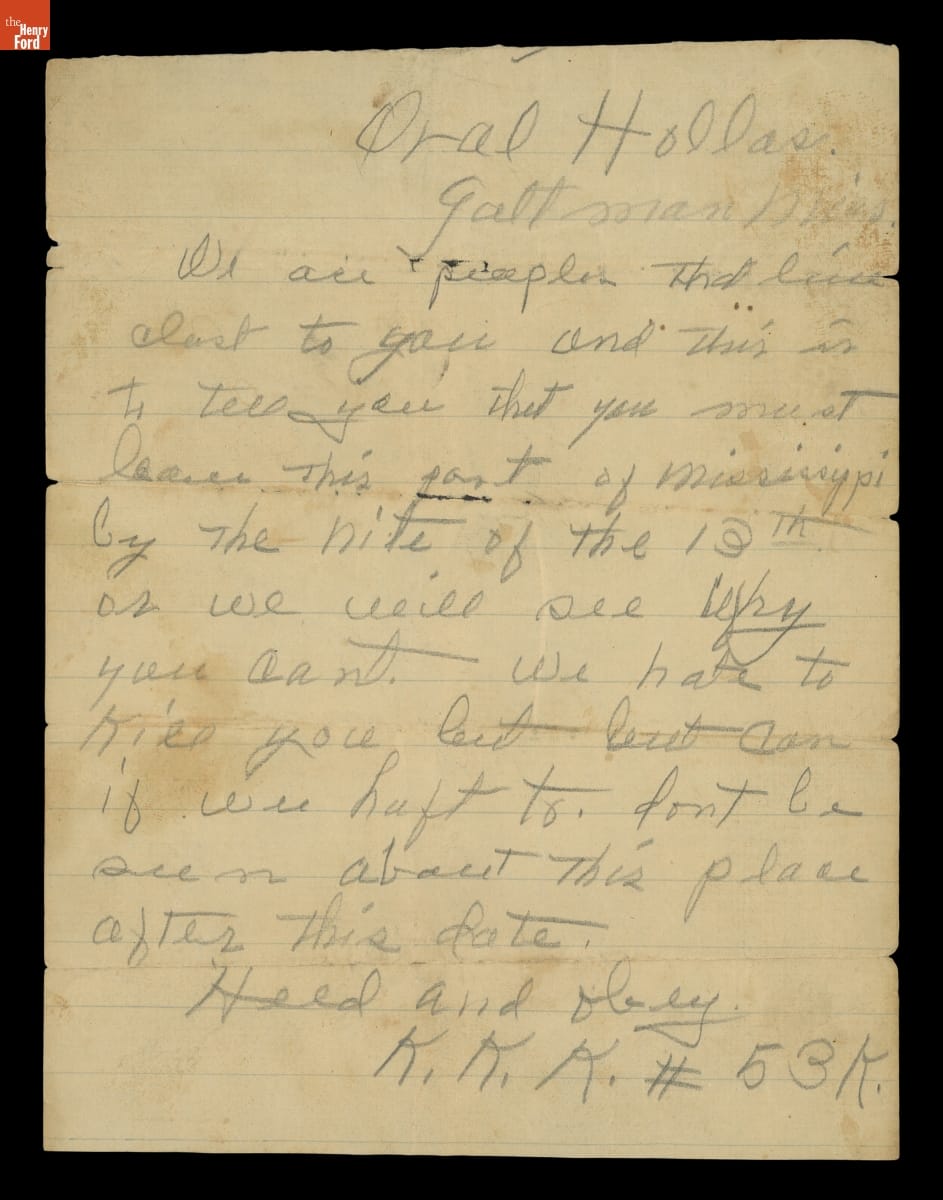 the
Henry
Ford
Oral Hollas.
Gattman Miss.
We are peaples that live
clost to you and this is
to tell you that you must
leave this part of Mississippi
by the Nite of the 13th
or we will see Why
you cant. We hate to
Kill you but but can
if we haft to. dont be
seen about this place
after this date.
Heed and obey.
K. K. K. # 53K.